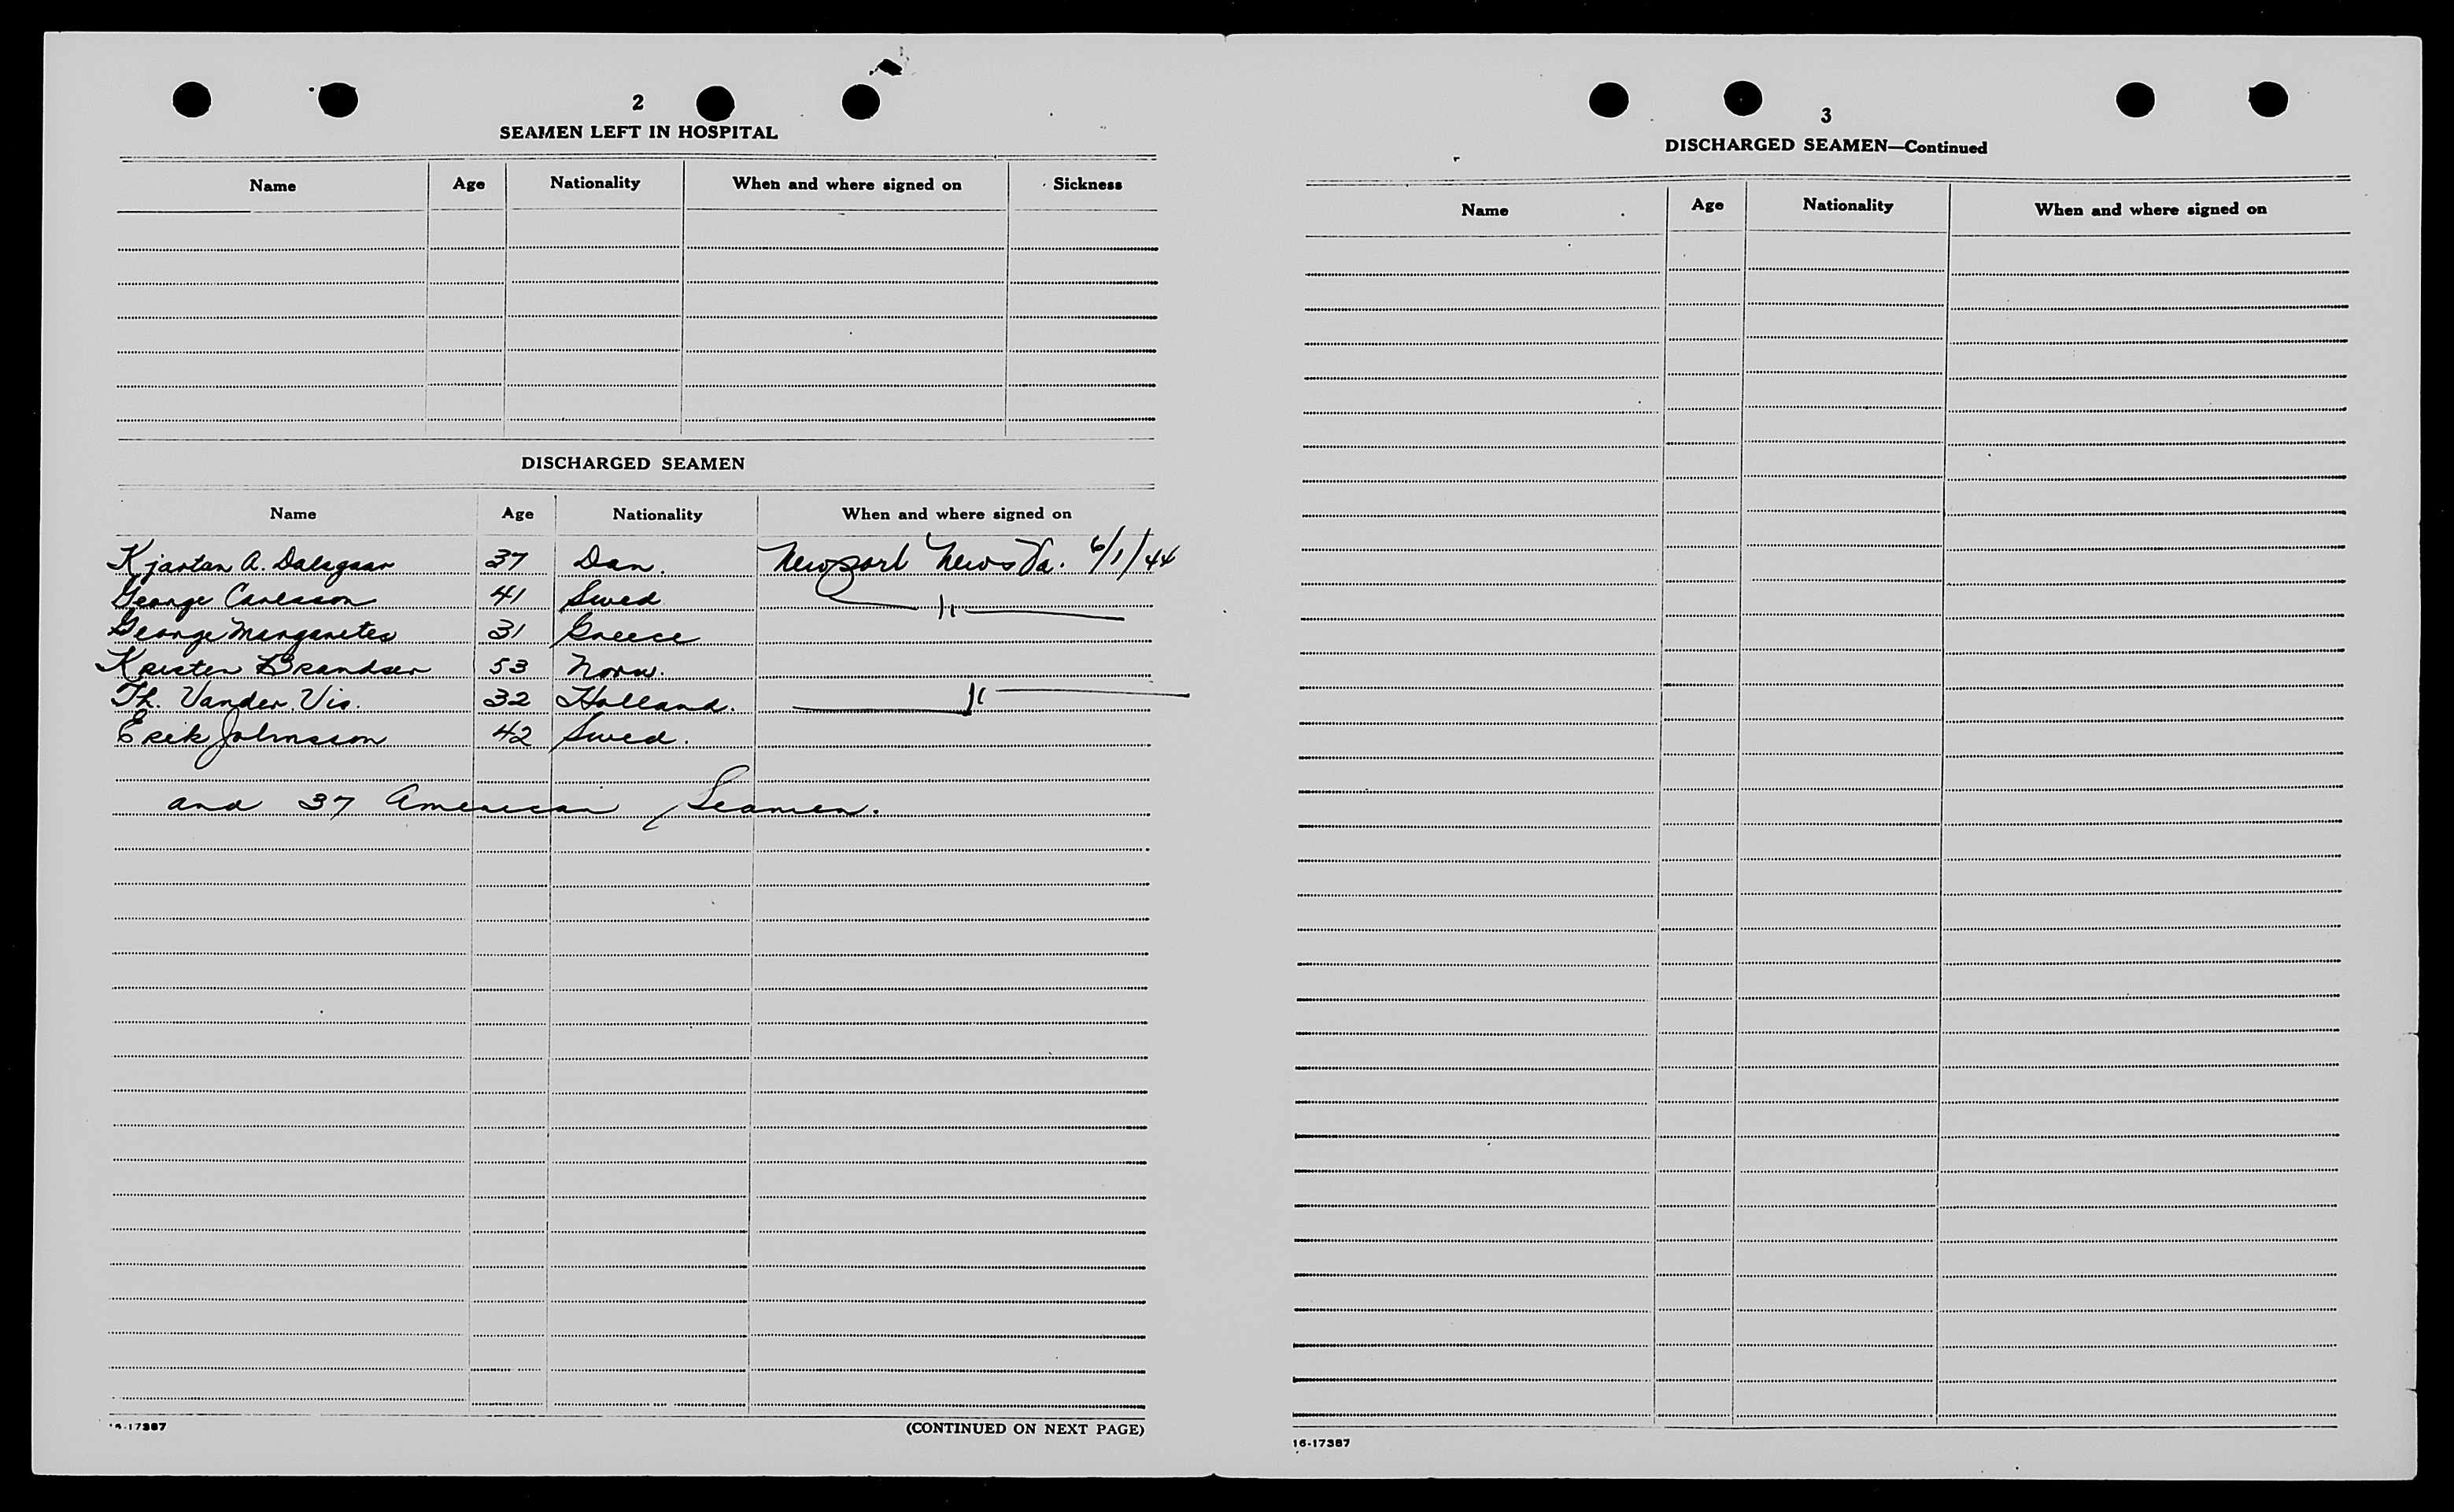 2
SEAMEN LEFT IN HOSPITAL
Name Age Nationality When and where signed on Sickness
DISCHARGED SEAMEN
Name Age Nationality When and where signed on
Kjartan A. Dalsgaar 37 Dan. Newport News Va. 6/1/44
George Carlsson 41 Swed — " —
George Margarites 31 Greece
Kristen Brandser 53 Norw.
Th. Vander Vis. 32 Holland. — " —
Erik Johnsson 42 Swed.
and 37 American Seamen.
16-17387 (CONTINUED ON NEXT PAGE)
3
DISCHARGED SEAMEN—Continued
Name Age Nationality When and where signed on
16-17387